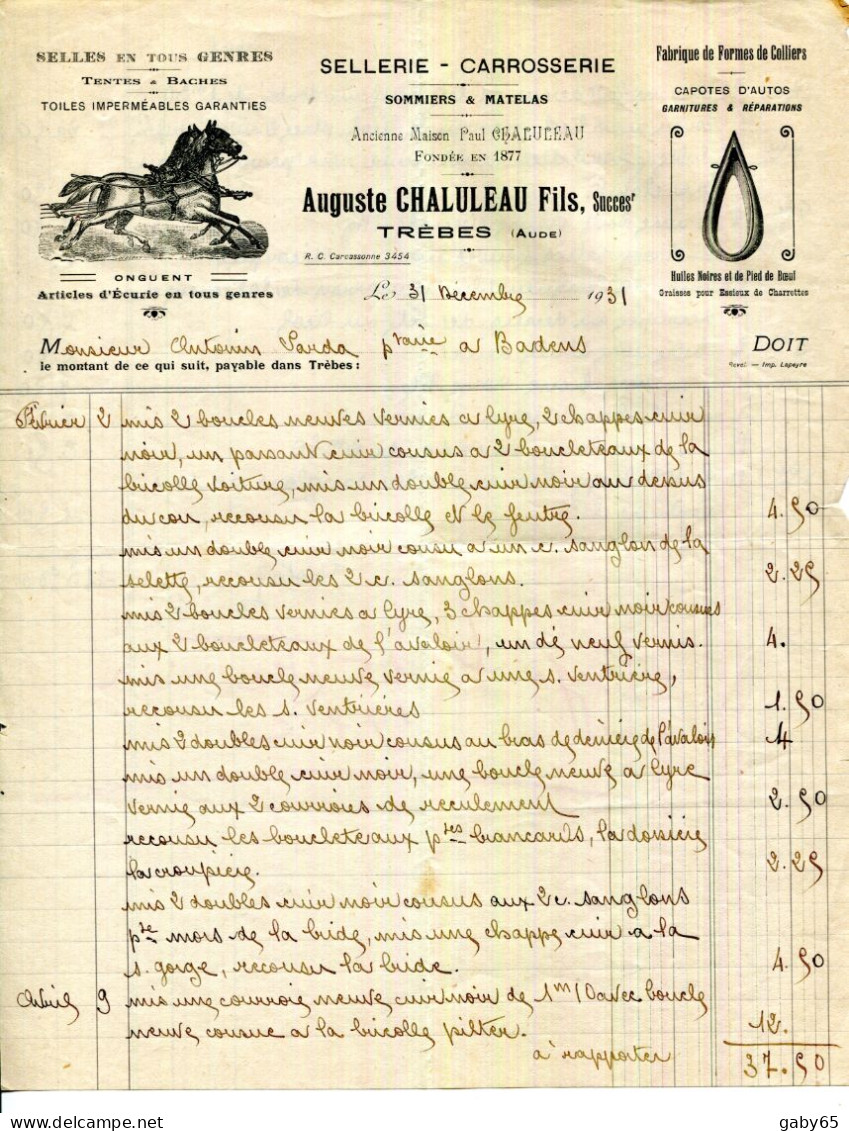 SELLES EN TOUS GENRES
TENTES & BACHES
TOILES IMPERMÉABLES GARANTIES
ONGUENT
Articles d'Écurie en tous genres
SELLERIE - CARROSSERIE
SOMMIERS & MATELAS
Ancienne Maison Paul CHALULEAU
FONDÉE EN 1877
Auguste CHALULEAU Fils, Succesr
TRÈBES (AUDE)
R. C. Carcassonne 3454
Fabrique de Formes de Colliers
CAPOTES D'AUTOS
GARNITURES & RÉPARATIONS
Huiles Noires et de Pied de Bœuf
Graisses pour Essieux de Charrettes
Le 31 Décembre 1931
Monsieur Antonin Sarda praire a Badens DOIT
le montant de ce qui suit, payable dans Trèbes :
Revel. — Imp. Lapeyre
Février 2 mis 2 boucles neuves vernies a lyre, 2 chappes cuir
noir, un passant cuir cousus a 2 boucleteaux de la
bricolle voiture, mis un double cuir noir au dessus
du cou, recousu la bricolle et le feutre. 4.50
mis un double cuir noir cousu a un c. sanglon de la
selette, recousu les 2 c. sanglons. 2.25
mis 2 boucles vernies a lyre, 3 chappes cuir noir cousues
aux 2 boucleteaux de l'avaloir, un dé neuf vernis. 4.
mis une boucle neuve vernie a une s. ventrière,
recousu les s. ventrières 1.50
mis 2 doubles cuir noir cousus au bras de derière de l'avaloir 4
mis un double cuir noir, une boucle neuve a lyre
vernie aux 2 courroies de reculement 2.50
recousu les boucleteaux ptes brancards, la dossière
la croupière. 2.25
mis 2 doubles cuir noir cousus aux 2 c. sanglons
pte mors de la bride, mis une chappe cuir a la
s. gorge, recousu la bride. 4.50
Avril 9 mis une courroie neuve cuir noir de 1m10 avec boucle
neuve cousue a la bricolle 12.
a rapporter 37.50
gaby65